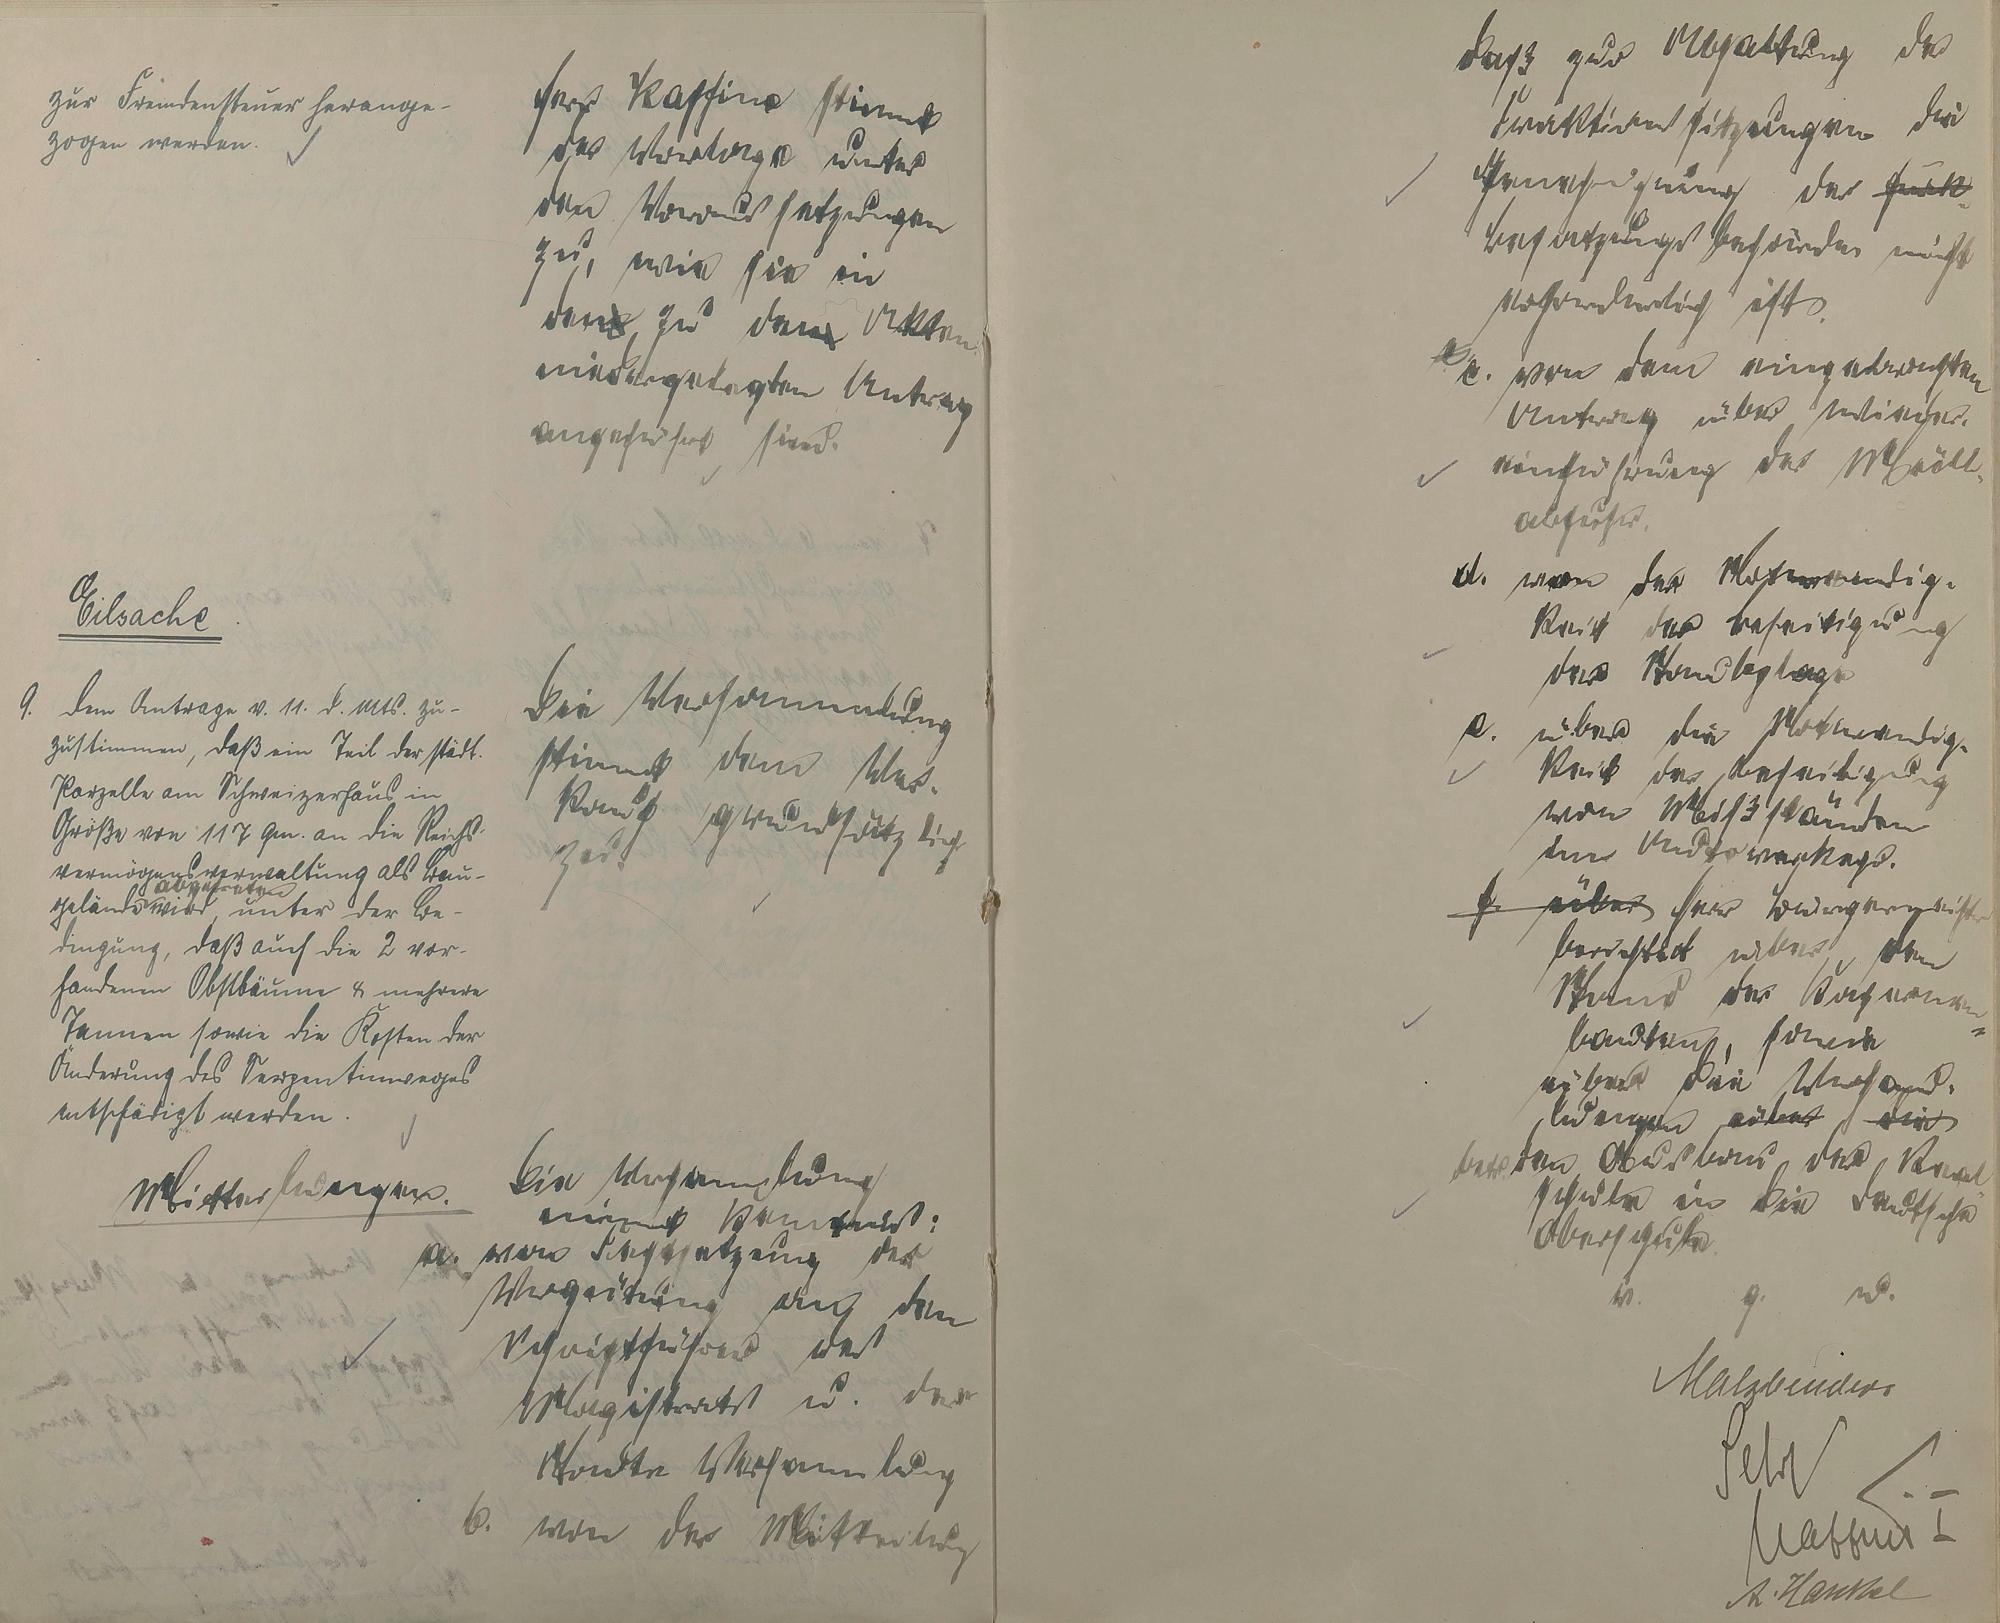 zur Fremdensteuer herange-
zogen werden.
Eilsache
9. Dem Antrage v. 11. d. Mts. zu-
zustimmen, daß ein Teil der städt.
Parzelle am Schweizerhaus in
Größe von 117 qm. an die Reichs-
vermögensverwaltung als Bau-
gelände wird abgetreten unter der Be-
dingung, daß auch die 2 vor-
handenen Obstbäume & mehrere
Tannen sowie die Kosten der
Änderung des Serpentinweges
entschädigt werden.
Mitteilungen.
Kassine stimmt
der Vorlage unter
den Voraussetzungen
zu, wie sie in
den zu den Akten
niedergelegten Antrag
angeführt sind.
Die Versammlung
stimmt dem Ver-
kauf grundsätzlich
zu.
Die Versammlung
nimmt Kenntnis:
a. von Festsetzung der
Vergütung an den
Schriftführer des
Magistrats u. der
Stadtv Versammlung
b. von der Mitteilung
daß zur Abhaltung der
Fraktionssitzungen die
Genehmigung der
Besatzungsbehörde nicht
erforderlich ist.
c. von dem eingebrachten
Antrag über Wieder-
einführung der Müll-
abfuhr.
d. von der Notwendig-
keit der Beseitigung
der Staubplage
e. über die Notwendig-
keit der Beseitigung
von Mißständen
im Autoverkehr.
f. über Herr Bürgermeister
berichtet über den
Stand der Kasernen-
bauten, sowie
über die Verhand-
lungen über die
betr. den Ausbau der Real
schule in die Deutsche
Oberschule
v. g. u.
Malzbender
A. Hankel